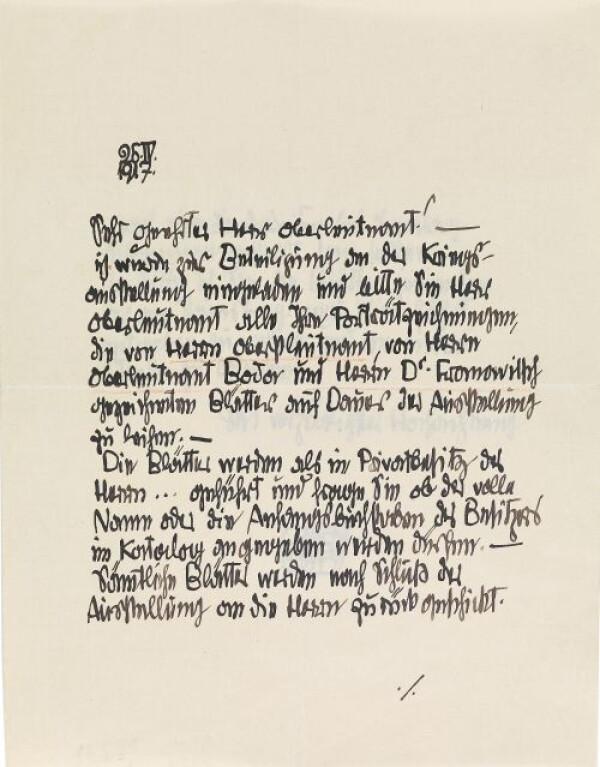 25.IV.
1917.
Sehr geehrter Herr Oberleutnant! —
ich wurde zur Beteiligung an der Kriegs-
ausstellung eingeladen und bitte Sie Herr
Oberleutnant alle Ihre Porträtzeichnungen,
die von Herrn Oberstleutnant, von Herrn
Oberleutnant Bodor und Herrn Dr. Fromowitsch
gezeichneten Blätter auf Dauer der Ausstellung
zu leihen. —
Die Blätter werden als in Privatbesitz des
Herrn ... geführt und frage Sie ob der volle
Name oder die Anfangsbuchstaben des Besitzers
im Katalog angegeben werden dürfen. —
Sämtliche Blätter werden nach Schluß der
Ausstellung an die Herrn zurück geschickt.
./.